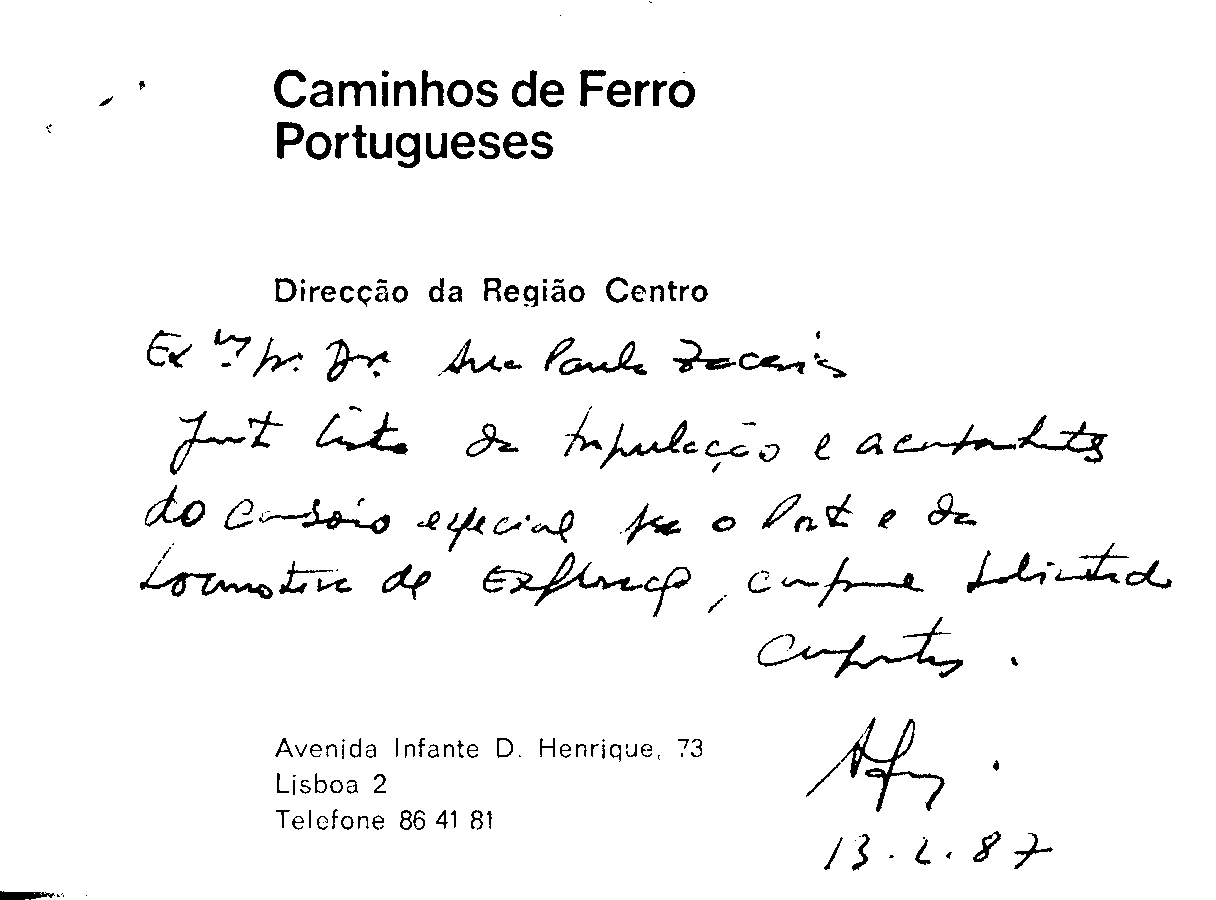 Caminhos de Ferro
Portugueses
Direcção da Região Centro
Exmª Srª Drª Ana Paula Zacarias
Junto lista da tripulação e acompanhantes
do comboio especial para o Porto e da
Locomotiva de Esforço, conforme solicitado
Cumptos.
Avenida Infante D. Henrique, 73
Lisboa 2
Telefone 86 41 81
13.2.87